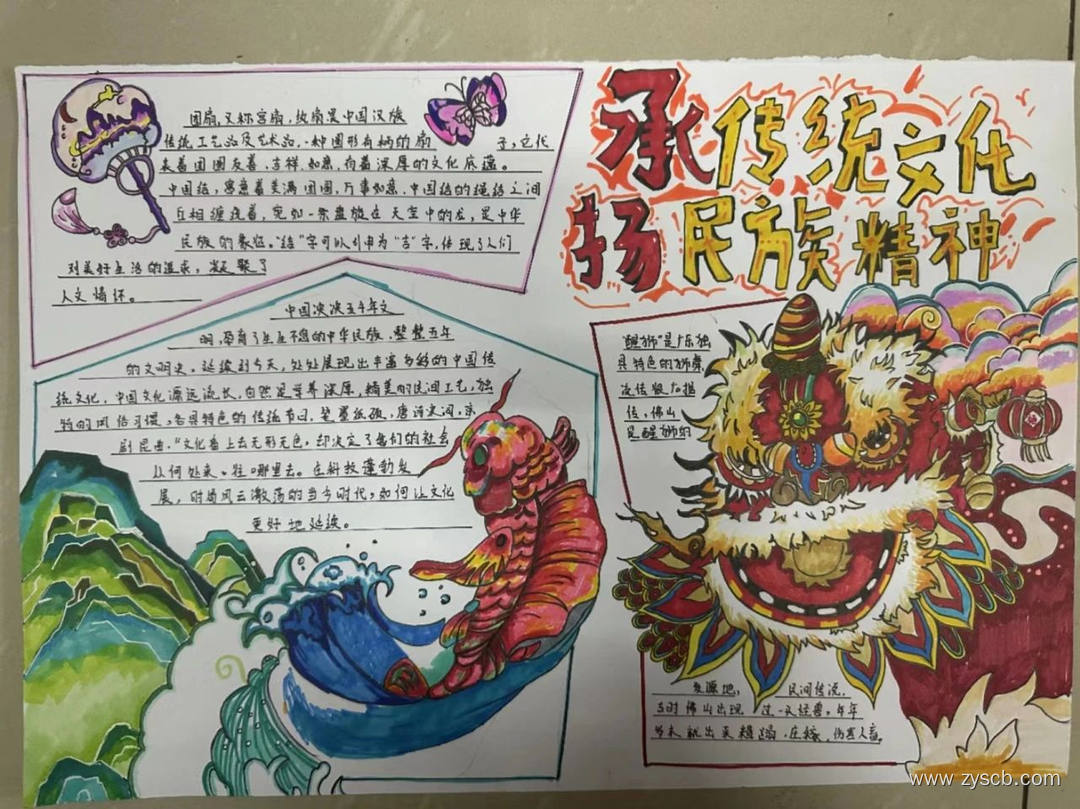 承传统文化
扬民族精神
团扇,又称宫扇,纨扇是中国汉族
传统工艺品及艺术品,一种圆形有柄的扇子,它代
表着团圆友善、吉祥如意,有着深厚的文化底蕴。
中国结,寓意着美满团圆,万事如意,中国结的绳结之间
互相缠绕着,宛如一条盘旋在天空中的龙,是中华
民族的象征。"结"字可以引申为"吉"字,体现了人们
对美好生活的追求,凝聚了
人文情怀。
中国泱泱五千年文
明,孕育了生生不息的中华民族,整整五年
的文明史。延续到今天,处处展现出丰富多彩的中国传
统文化。中国文化源远流长,自然是学养深厚,精美的民间工艺,独
特的风俗习惯,各具特色的传统节日,笔墨纸砚,唐诗宋词,京
剧昆曲。"文化看上去无形无色,却决定了我们的社会
从何处来、往哪里去。在科技蓬勃发
展,时局风云激荡的当今时代,如何让文化
更好地延续。
"醒狮"是广东独
具特色的狮舞,
流传极广
传,佛山
是醒狮的
发源地,民间传说,
当时佛山出现过一次怪兽,年年
岁末就出来糟蹋庄稼,伤害人畜。
www.zyscb.com